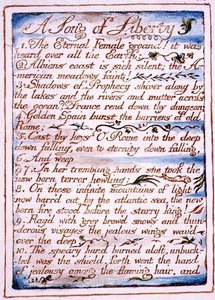 A Song of Liberty
1. The Eternal Female groand! it was
heard over all the Earth:
2. Albions coast is sick silent; the A-
merican meadows faint!
3. Shadows of Prophecy shiver along by
the lakes and the rivers and mutter across
the ocean. France rend down thy dungeon;
4. Golden Spain burst the barriers of old
Rome;
5. Cast thy keys O Rome into the deep
down falling, even to eternity down falling,
6. And weep
7. In her trembling hands she took the
new born terror howling;
8. On those infinite mountains of light
now barr'd out by the atlantic sea, the new
born fire stood before the starry king!
9. Flag'd with grey brow'd snows and thun-
derous visages the jealous wings wav'd
over the deep.
10. The speary hand burned aloft, unbuck-
led was the shield, forth went the hand
of jealousy among the flaming hair, and